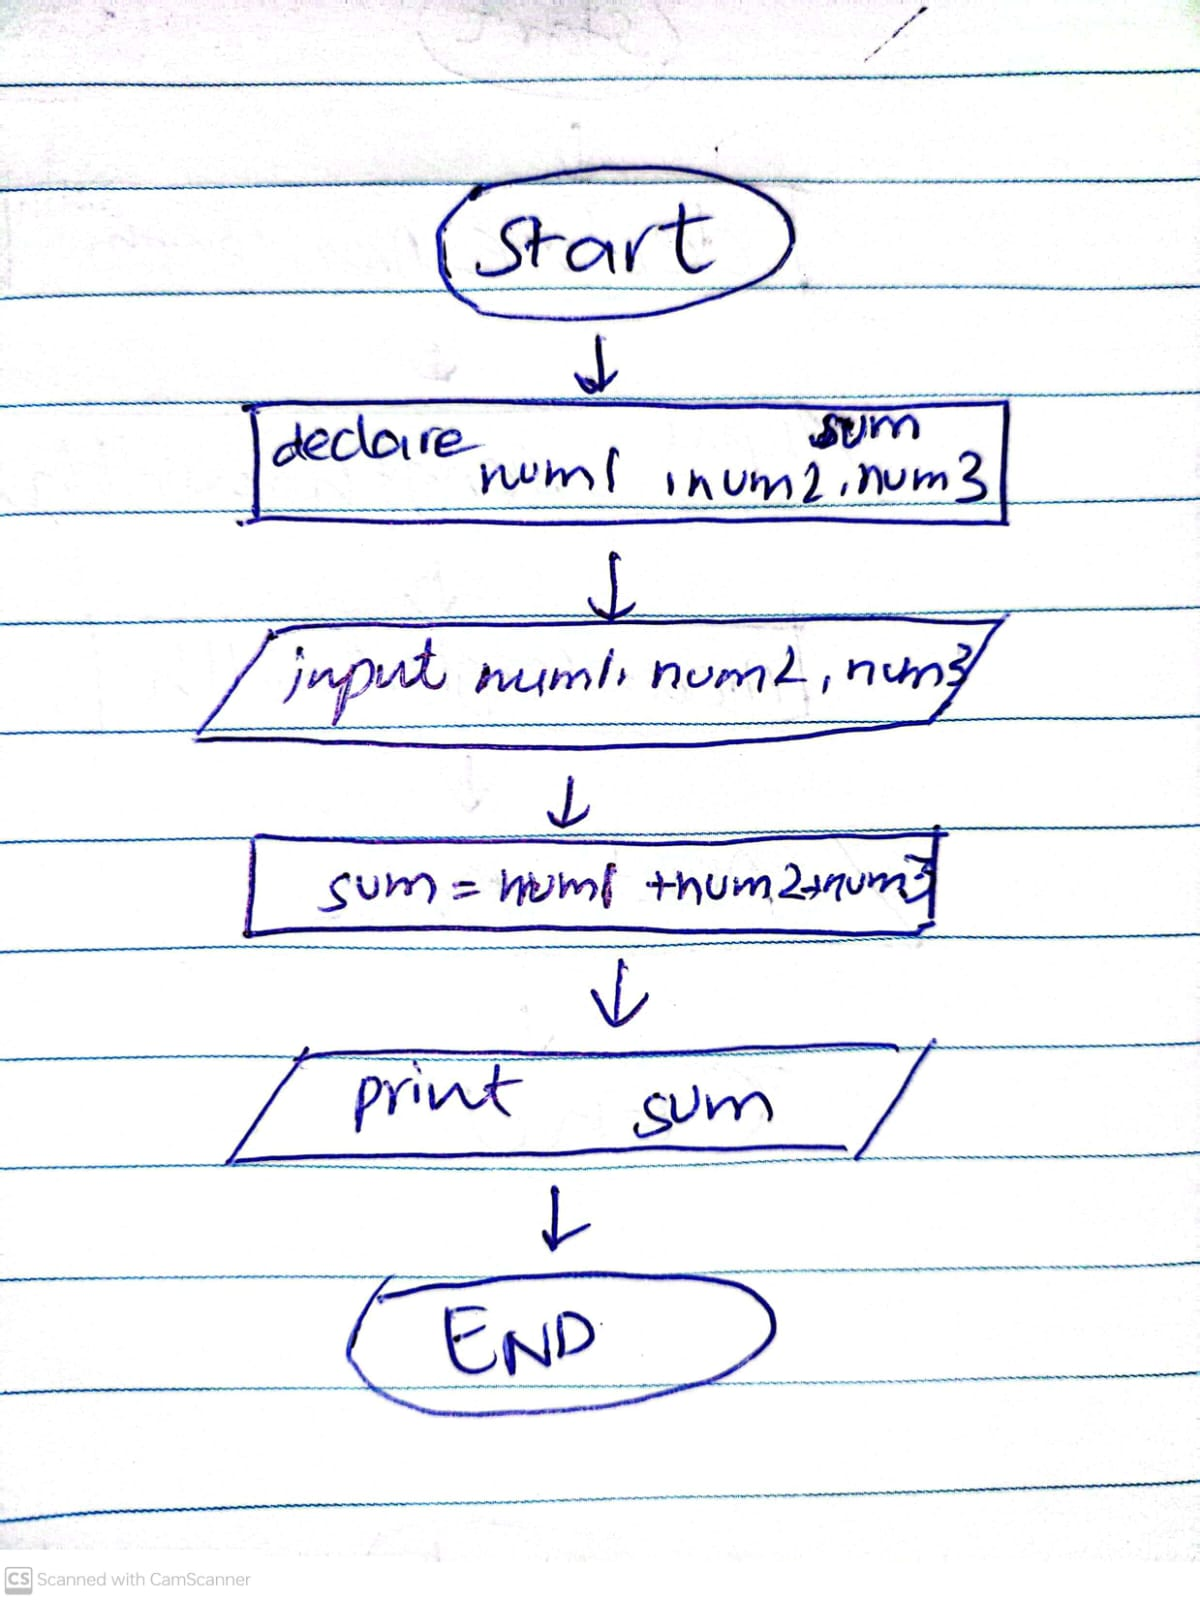 Start
declare sum
num1 , num2, num3
input num1, num2, num3
sum = num1 +num2+num3
print sum
END
CS Scanned with CamScanner